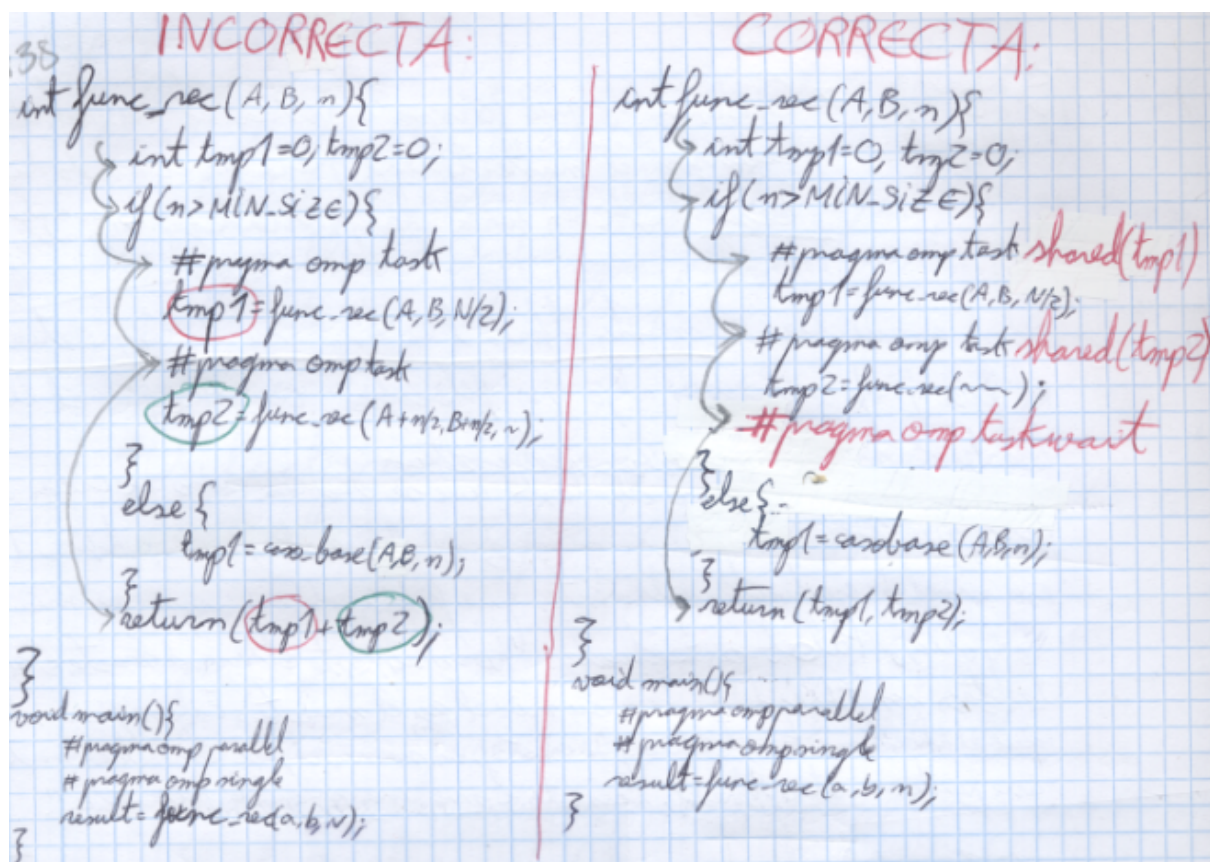 38
INCORRECTA:
int func_rec(A, B, n){
int tmp1=0, tmp2=0;
if(n>MIN_SIZE){
#prgma omp task
tmp1=func_rec(A,B,N/2);
#pragma omp task
tmp2=func_rec(A+n/2,B+n/2,~);
}
else{
tmp1=caso_base(A,B,n);
}
return(tmp1+tmp2);
}
void main(){
#pragma omp parallel
#pragma omp single
result=func_rec(a,b,N);
}
CORRECTA:
int func_rec(A,B,n){
int tmp1=0, tmp2=0;
if(n>MIN_SIZE){
#pragma omp task shared(tmp1)
tmp1=func_rec(A,B,N/2);
#pragma omp task shared(tmp2)
tmp2=func_rec(~~~);
#pragma omp taskwait
}
else{
tmp1=casobase(A,B,n);
}
return(tmp1,tmp2);
}
void main(){
#pragma omp parallel
#pragma omp single
result=func_rec(a,b,n);
}